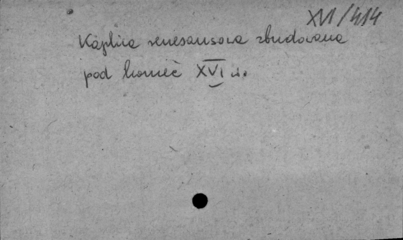 XVI/414
Kaplica renesansowa zbudowana
pod koniec XVI w.